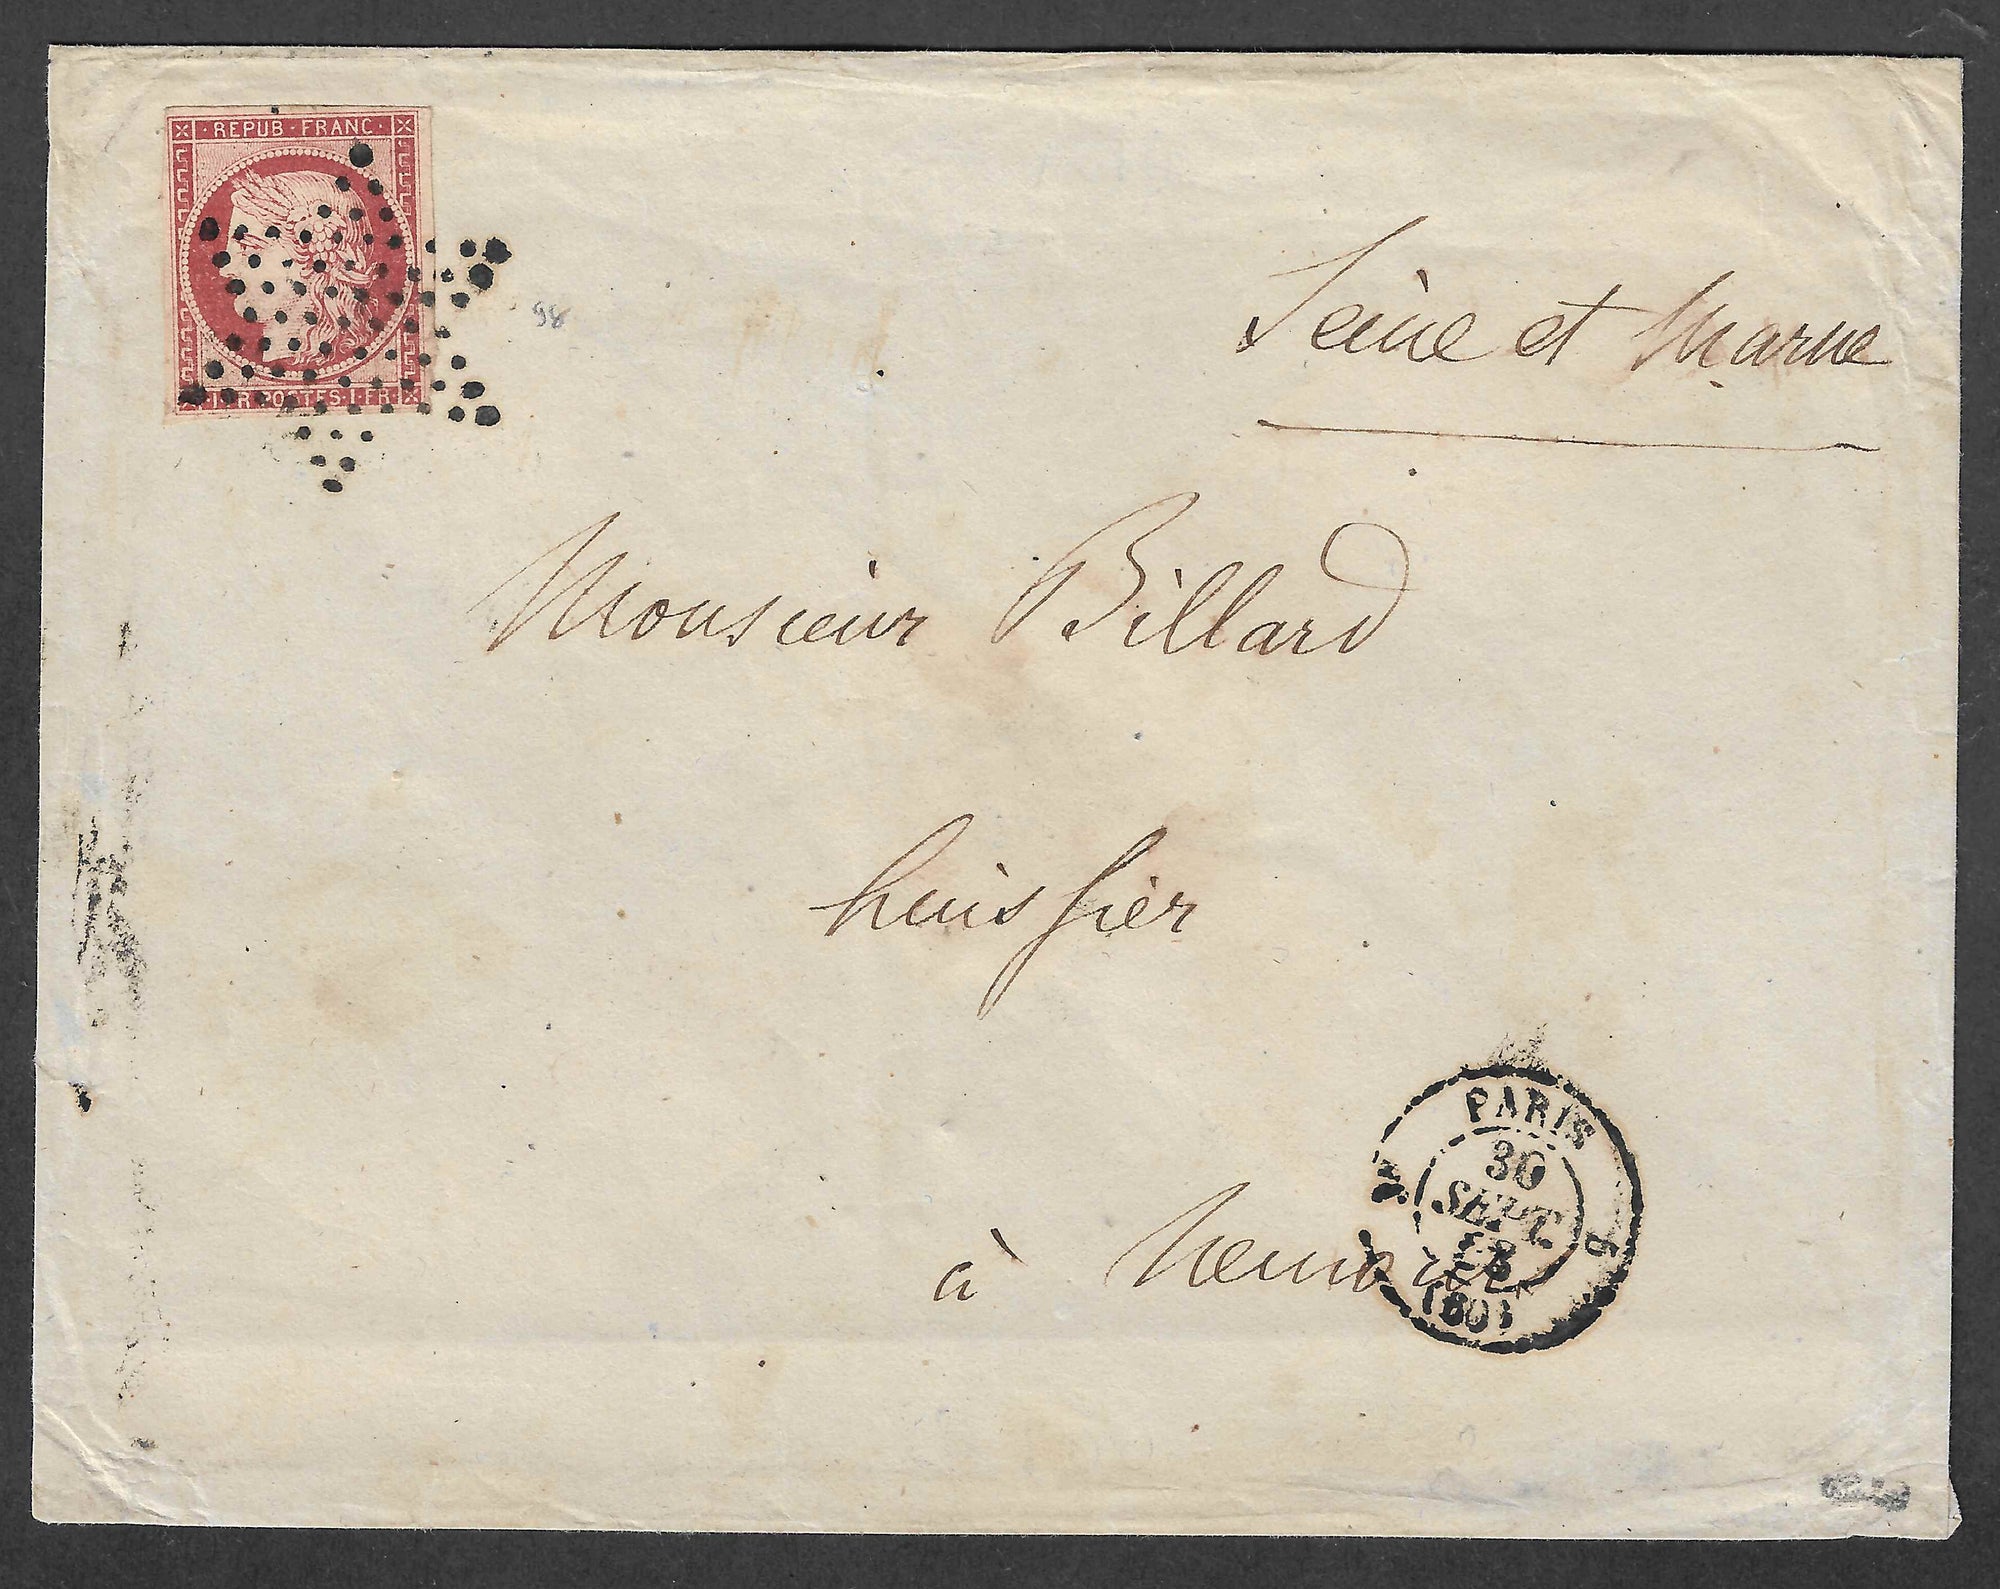 REPUB · FRANC ·
1 · FR POSTES · 1 · FR
98
Seine et Marne
Monsieur Billard
huissier
à Nemours
PARIS
30
SEPT.
(60)